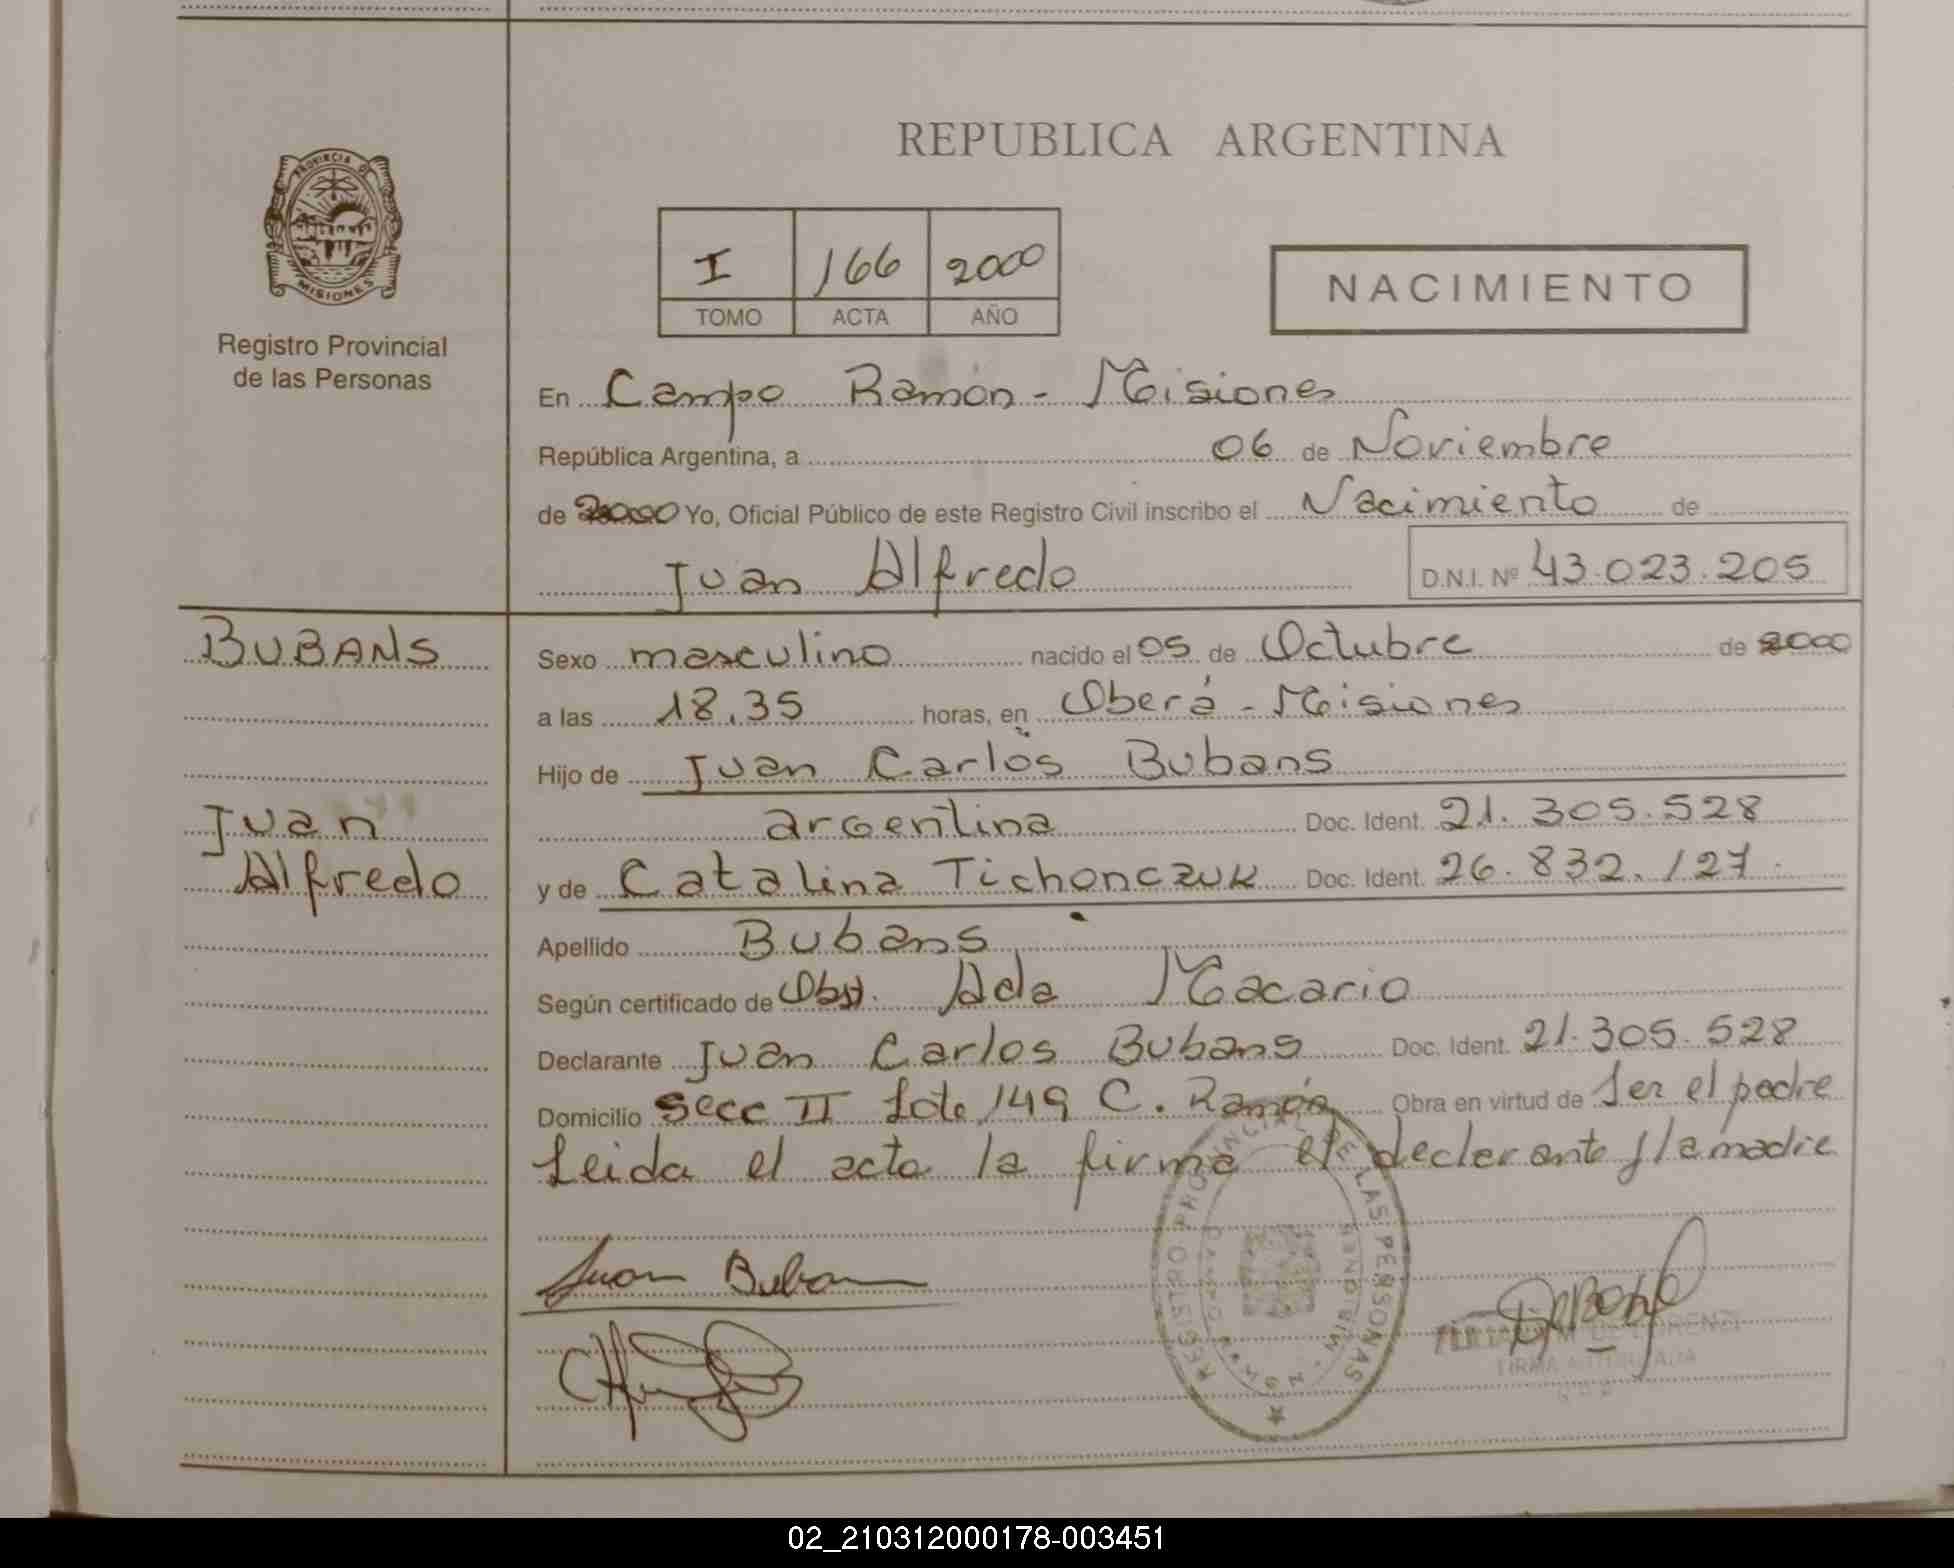 REPUBLICA ARGENTINA
PROVINCIA DE
MISIONES
Registro Provincial
de las Personas
I 166 2000
TOMO ACTA AÑO
NACIMIENTO
En Campo Ramón - Misiones
República Argentina, a 06 de Noviembre
de 2000 Yo, Oficial Público de este Registro Civil inscribo el Nacimiento de
Juan Alfredo D.N.I. Nº 43.023.205
BUBANS
Juan
Alfredo
Sexo masculino nacido el 05 de Octubre de 2000
a las 18.35 horas, en Oberá - Misiones
Hijo de Juan Carlos Bubans
argentina Doc. Ident. 21.305.528
y de Catalina Tichonczuk Doc. Ident. 26.832.127
Apellido Bubans
Según certificado de Obst. Ada Macario
Declarante Juan Carlos Bubans Doc. Ident. 21.305.528
Domicilio Secc II Lote 149 C. Ramón Obra en virtud de Ser el padre
Leida el acta la firma el declarante y la madre
Juan Buban
REGISTRO PROVINCIAL DE LAS PERSONAS
MISIONES
DE LORENZI
FIRMA AUTORIZADA
02_210312000178-003451